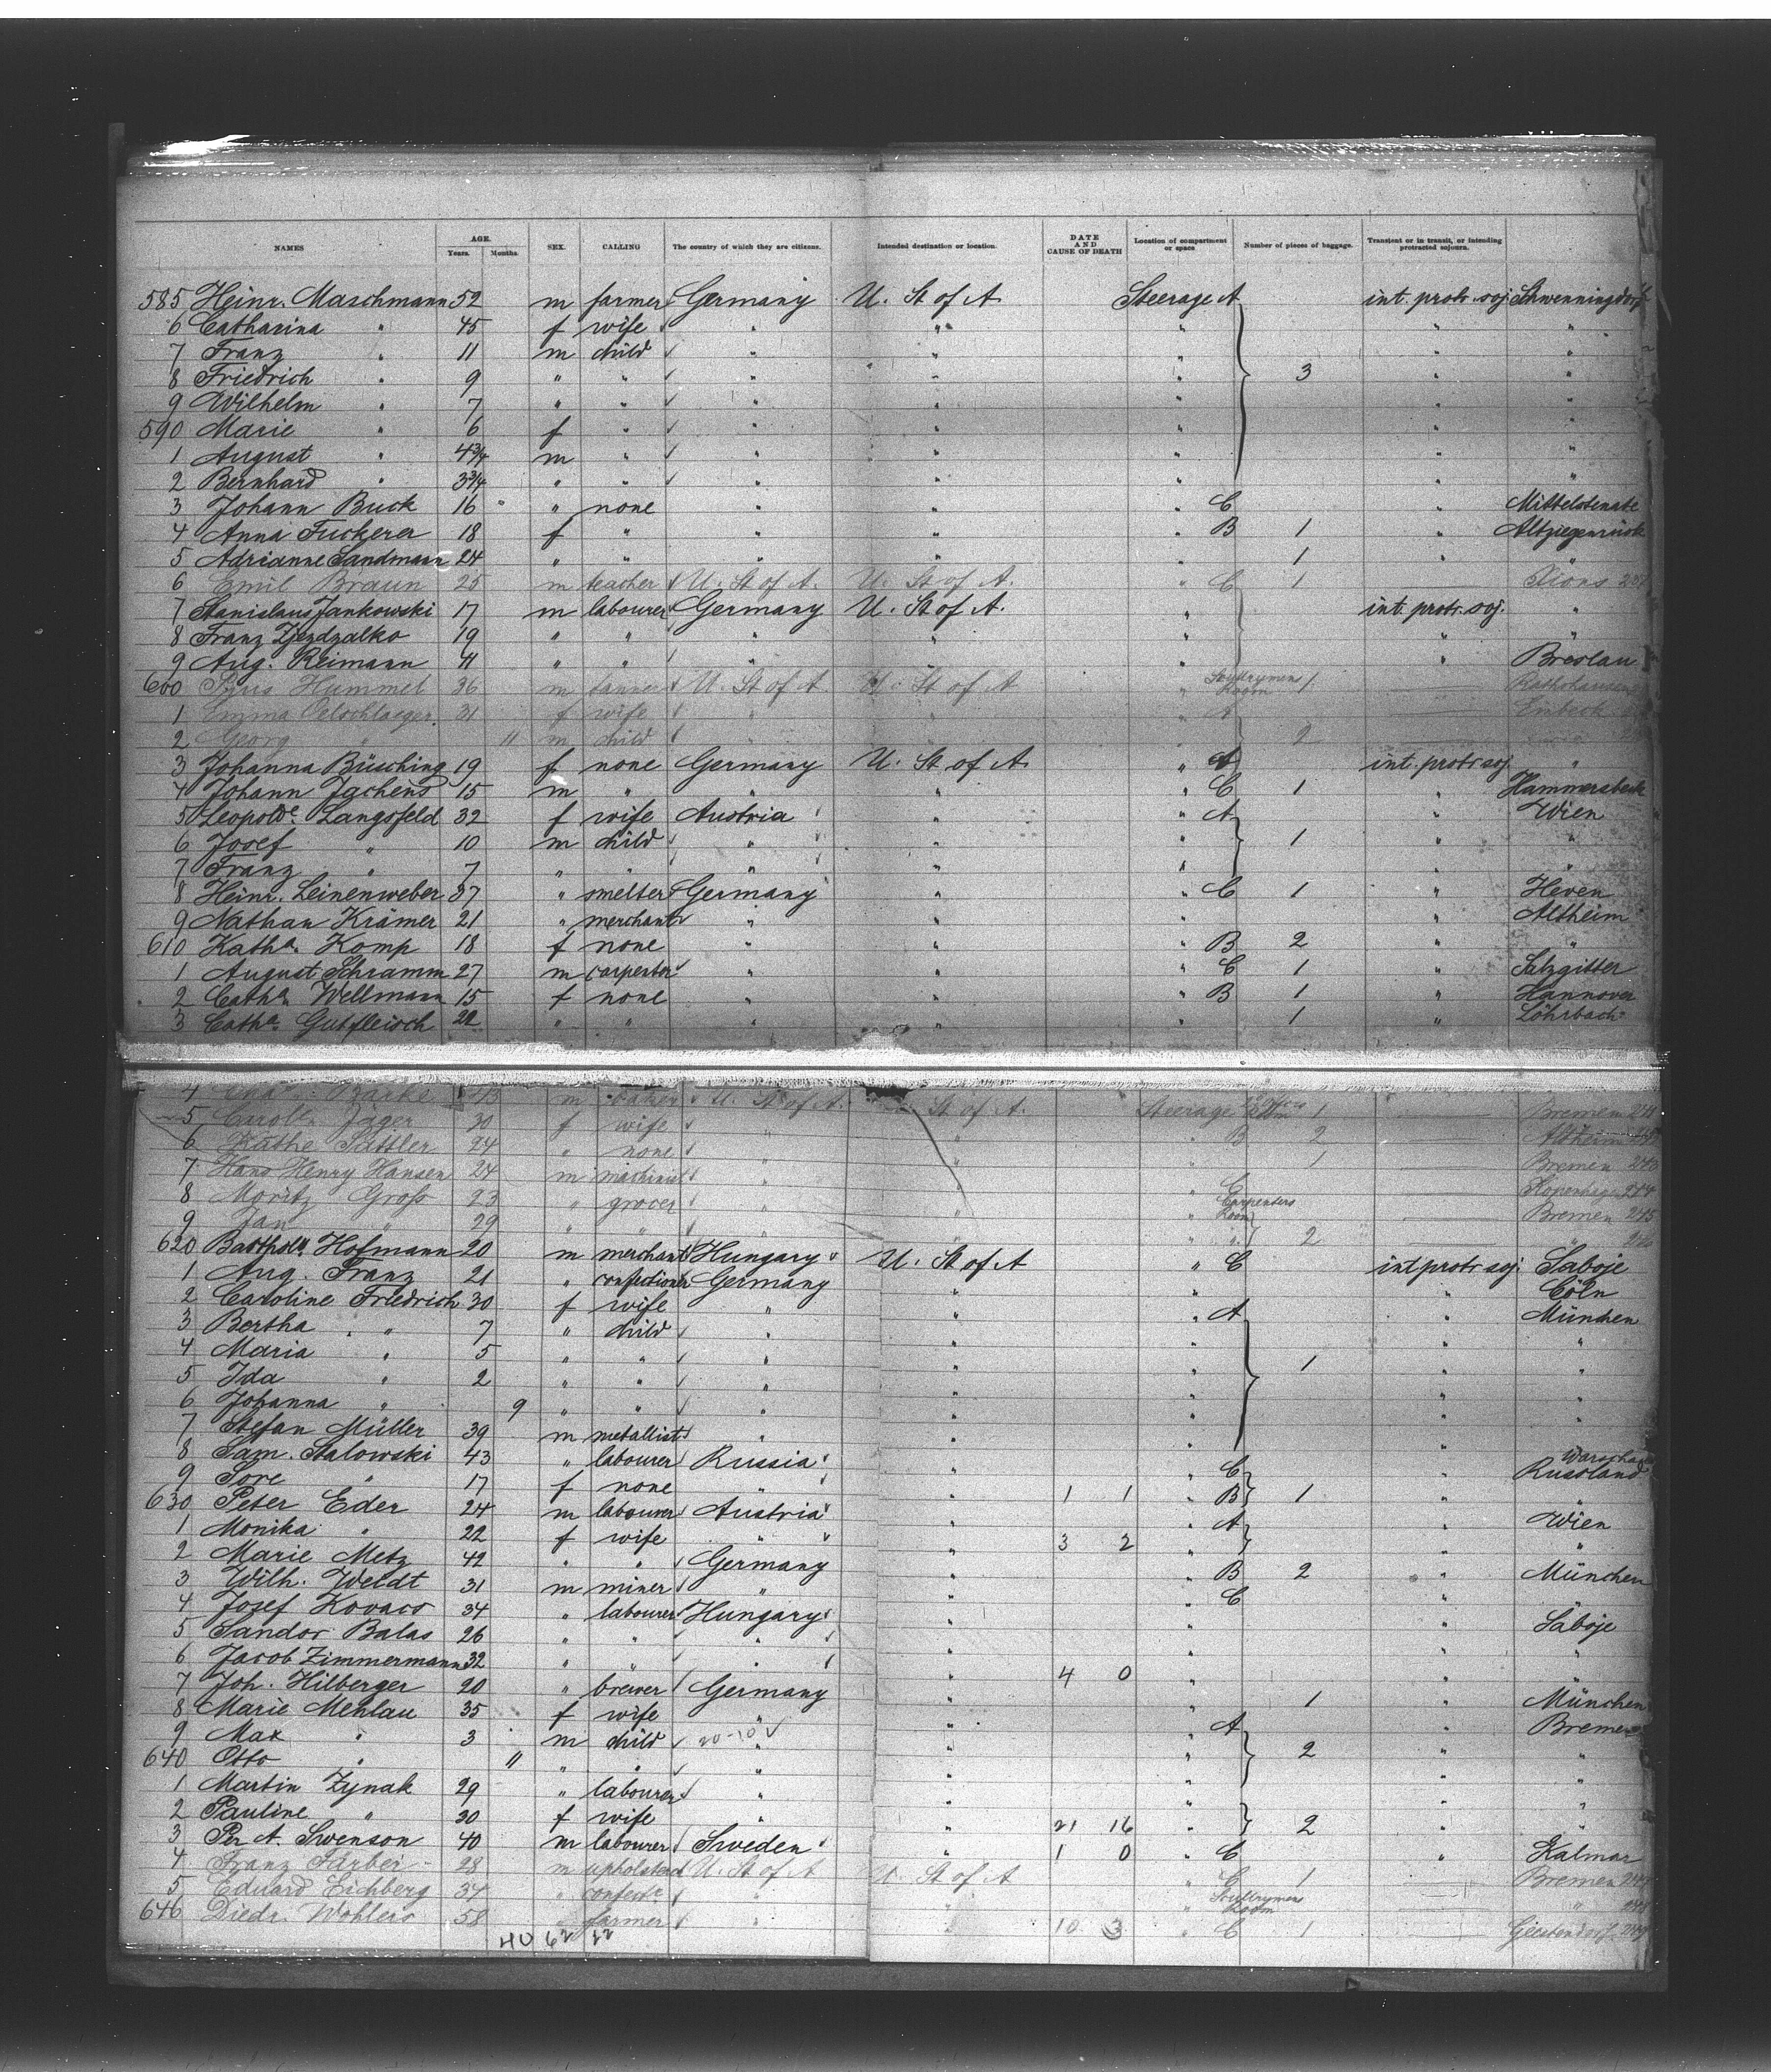 NAMES AGE. Years. Months. SEX. CALLING The country of which they are citizens. Intended destination or location. DATE AND CAUSE OF DEATH Location of compartment or space Number of pieces of baggage. Transient or in transit, or intending protracted sojourn.
585 Heinr. Maschmann 52 m farmer Germany U. St of A Steerage A int. protr. soj. Schwenningdorf
6 Catharina " 45 f wife " " " " "
7 Franz " 11 m child " " " " "
8 Friedrich " 9 " " " " " 3 " "
9 Wilhelm " 7 " " " " " " "
590 Marie " 6 f " " " " " "
1 August " 4¾ m " " " " " "
2 Bernhard " 3¾ " " " " " " "
3 Johann Buck 16 " none " " " C " Mittelstenahe
4 Anna Fuckerer 18 f " " " " B 1 " Altziegenrück
5 Adrianne Sandmann 24 " " " " " 1 " "
6 Emil Braun 25 m teacher U. St of A. U. St of A. " C 1 Xions
7 Stanislaus Jankowski 17 m labourer Germany U. St of A. " int. protr. soj. "
8 Franz Zjezdzalko 19 " " " " " " "
9 Aug. Reimann 41 " " " " " " Breslau
600 Pius Hummel 36 m tanner U. St of A U. St of A " Scullrymen Room 1
1 Emma Oelschlaeger 31 f wife " " " A Einbeck
2 Georg " 11 m child " " " 2
3 Johanna Büsching 19 f none Germany U. St of A. " A int. protr soj. "
4 Johann Jachens 15 m " " " " C 1 " Hammersbeck
5 Leopolde. Langsfeld 32 f wife Austria " " A " Wien
6 Josef " 10 m child " " " 1 " "
7 Franz " 7 " " " " " " "
8 Heinr. Leinenweber 37 " smelter Germany " " C 1 " Heven
9 Nathan Krämer 21 " merchant " " " " Altheim
610 Katha. Komp 18 f none " " " B 2 " "
1 August Schramm 27 m carpenter " " " C 1 " Salzgitter
2 Catha. Wellmann 15 f none " " " B 1 " Hannover
3 Catha. Gutfleisch 22 " " " " " 1 " Löhrbach
4 m U. St of A. St of A. Steerage 1 Bremen
5 Carolin Jäger 30 f wife " " " B 2 Altheim
6 Käthe Sattler 24 " none " " 1 Bremen
7 Hans Henry Hansen 24 m machinist " " " C Kopenhagen
8 Moritz Gross 23 " grocer " " " Carpenters Room Bremen 245
9 Jan " 29 " " " " " 2 "
620 Barthol. Hofmann 20 m merchant Hungary U. St of A " C int protr soj. Saboje
1 Aug. Franz 21 " confectioner Germany " " " Cöln
2 Caroline Friedrich 30 f wife " " " A " München
3 Bertha " 7 " child " " " " "
4 Maria " 5 " " " " " 1 " "
5 Ida " 2 " " " " " " "
6 Johanna " 9 " " " " " " "
7 Stefan Müller 39 m metallist " " " "
8 Sam. Stalowski 43 " labourer Russia " " C " Warschau Russland
9 Sore " 17 f none " " 1 1 " B 1 " "
630 Peter Eder 24 m labourer Austria " " A " Wien
1 Monika " 22 f wife " " 3 2 " " "
2 Marie Metz 42 " " Germany " " B 2 " München
3 Wilh. Weldt 31 m miner " " " C "
4 Josef Kovacs 34 " labourer Hungary " " " Säboje
5 Sandor Balas 26 " " " " " " "
6 Jacob Zimmermann 32 " " " " 4 0 " " "
7 Joh. Hilberger 20 " brewer Germany " " 1 " München
8 Marie Mehlau 35 f wife " " " A " Bremen
9 Max " 3 m child 20-10 " " " 2 " "
640 Otto " 11 " " " " " " "
1 Martin Zynak 29 " labourer " " " " "
2 Pauline " 30 f wife " " 21 16 " 2 " "
3 Per A. Swenson 40 m labourer Sweden " 1 0 " C " Kalmar
4 Franz Färber 28 m upholsterer U. St of A U. St of A " C 1 Bremen
5 Eduard Eichberg 34 " confectr. " " " Scullrymens Room "
646 Diedr. Wohlers 58 " farmer " " 10 3 " C 1 Geestendorf
40 62 22